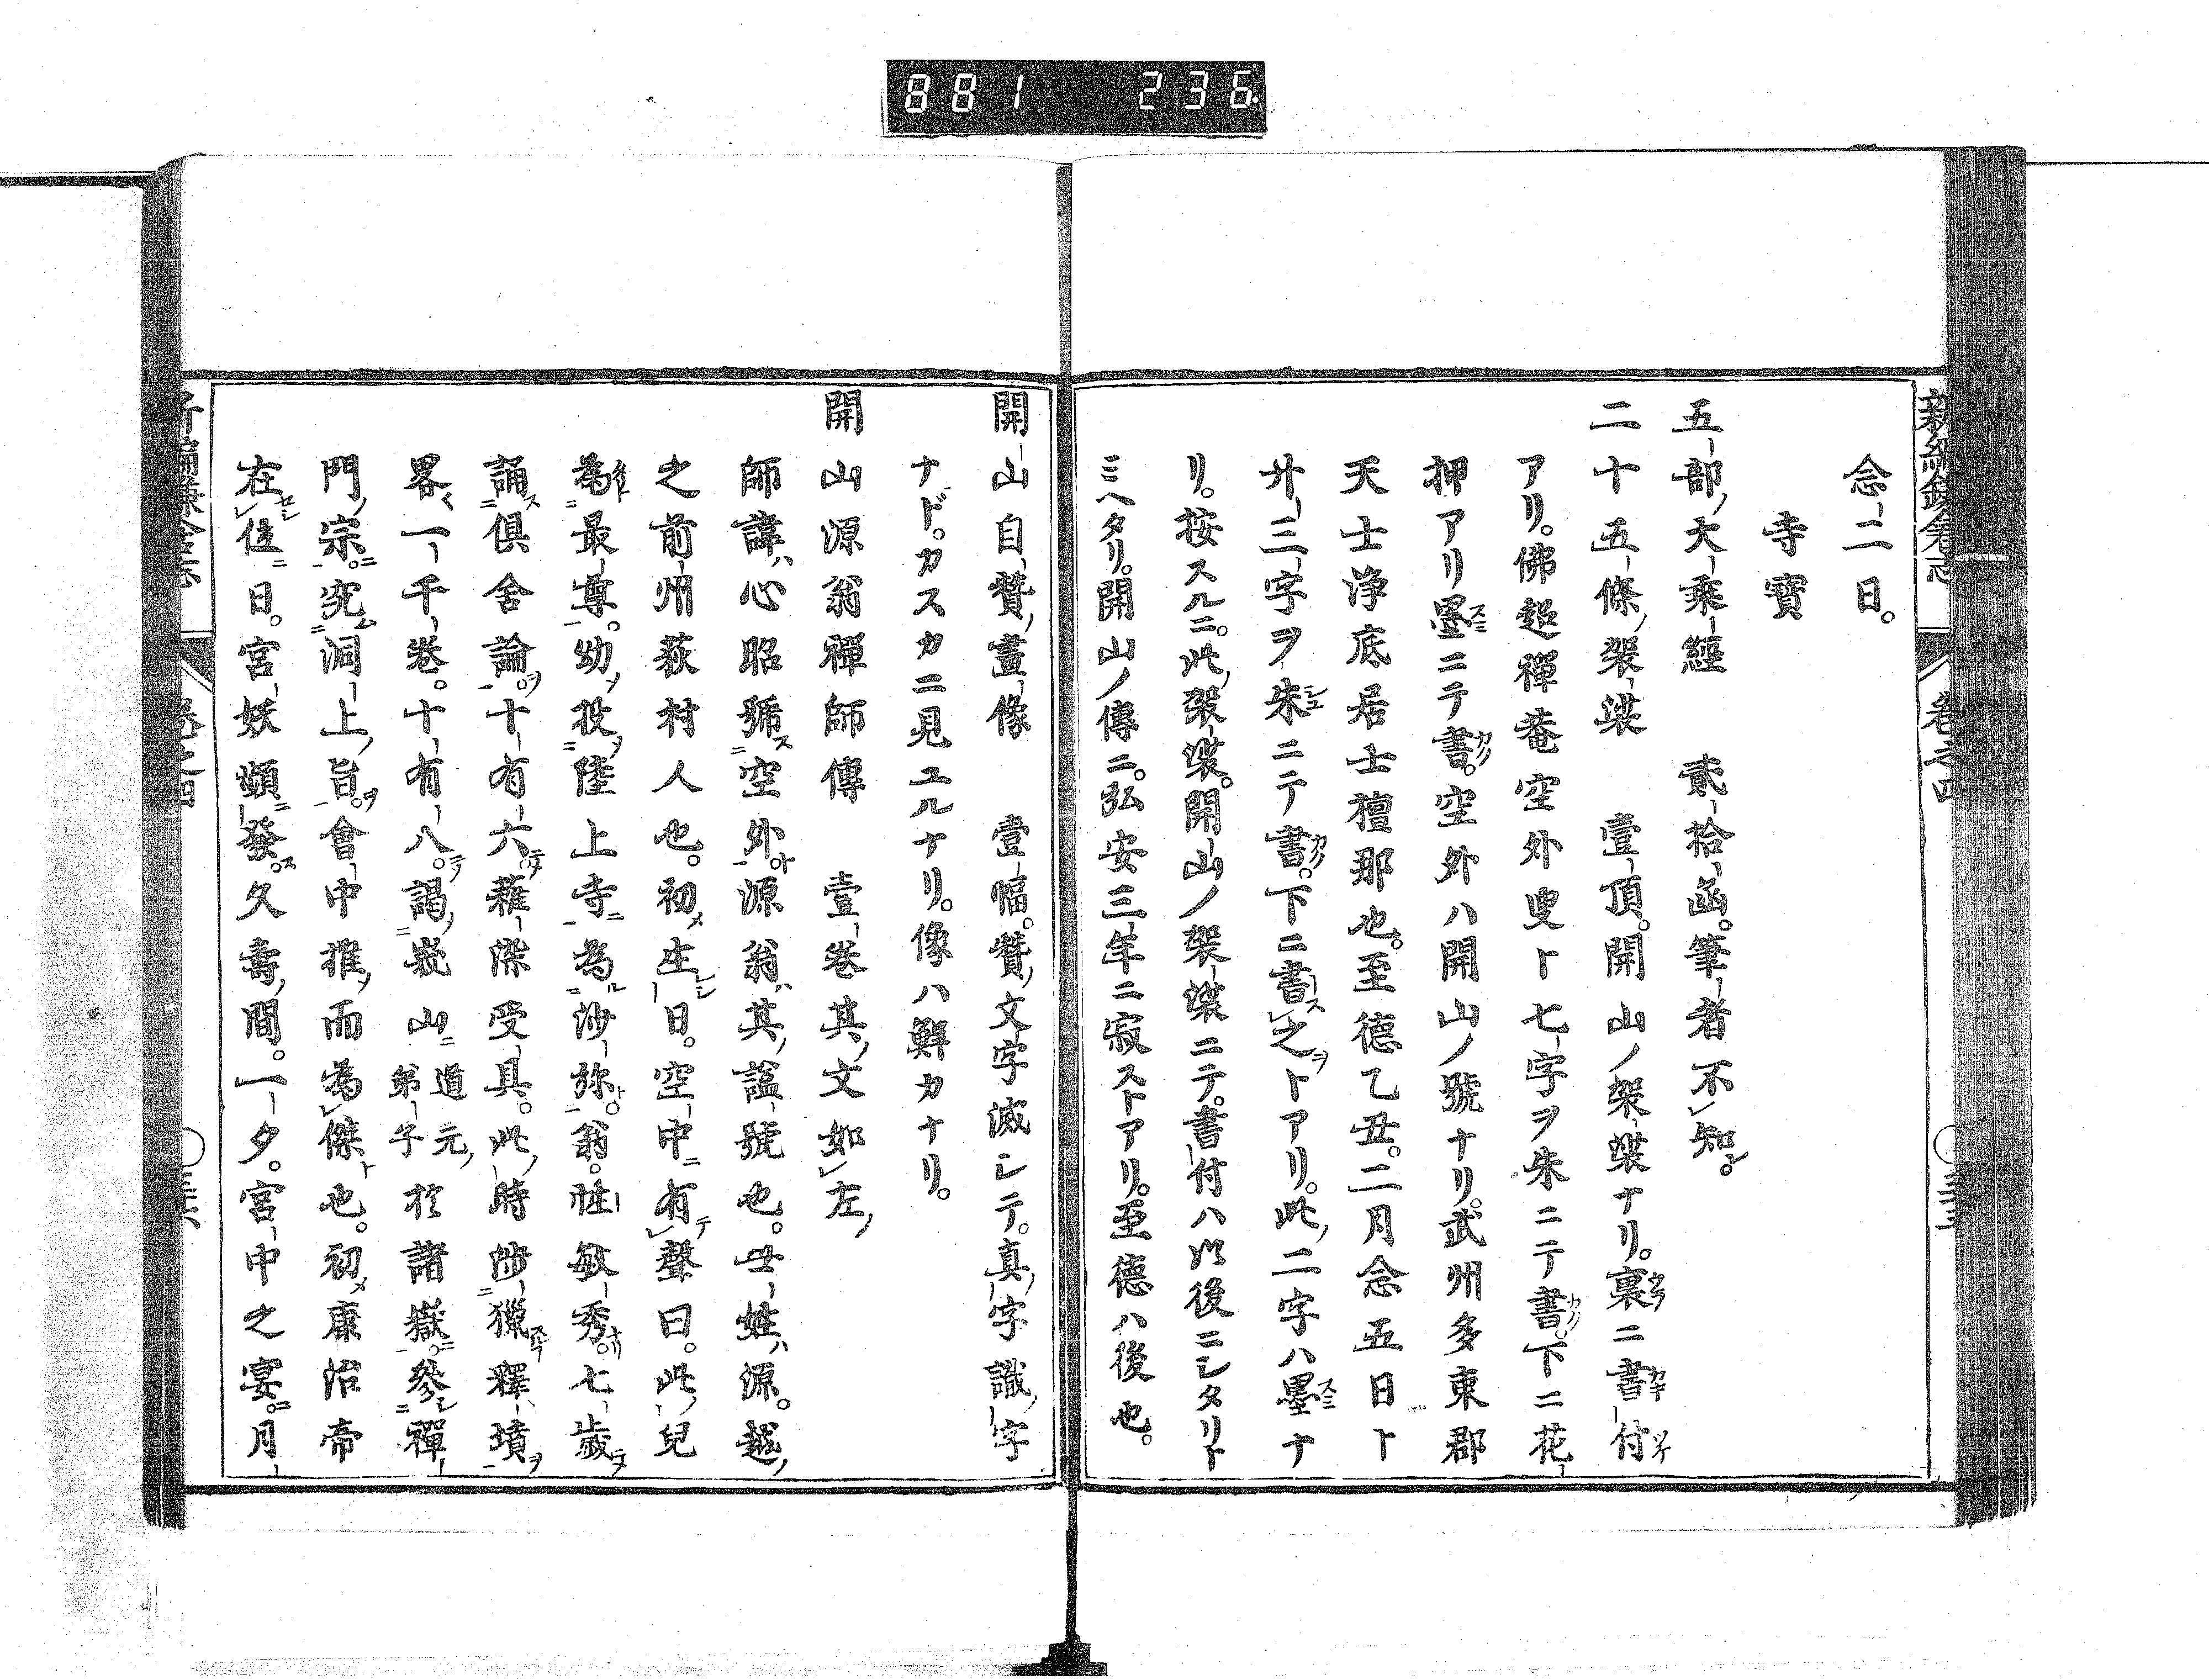 881 236
新編鎌倉志 卷之四 〇三十五
念二日。
寺寶
五部大乘經 貳拾函。筆者不知。
二十五條袈裟 壹頂。開山ノ袈裟ナリ。裏ニ書付
アリ。佛超禪菴空外叟ト七字ヲ朱ニテ書。下ニ花
押アリ墨ニテ書。空外ハ開山ノ號ナリ。武州多東郡
天士淨底居士檀那也。至德乙丑。二月念五日ト
廿三字ヲ朱ニテ書。下ニ書之トアリ。此二字ハ墨ナ
リ。按スルニ。此袈裟。開山ノ袈裟ニテ。書付ハ以後ニシタリト
ミヘタリ。開山ノ傳ニ。弘安三年ニ寂ストアリ。至德ハ後也。
開山自贊畫像 壹幅。贊文字滅シテ。眞字識字
ナド。カスカニ見ユルナリ。像ハ鮮カナリ。
開山源翁禪師傳 壹卷其文如左
師諱ハ心昭號ス空外ト。源翁ハ其謚號也。母姓ハ源。越
之前州荻村人也。初メ生シ日。空中ニ有テ聲曰。此兒
爲最尊。幼投陸上寺ニ爲ル沙弥ト。翁。性敏秀。七歲
誦ス俱舍論ヲ。十有六。薙染受具。此時涉獵釋墳ヲ
畧一千卷。十有八。謁峩山ニ道元弟子於諸嶽ニ。參シ禪
門宗ニ。究ム洞上旨ヲ。會中推而爲傑ト也。初メ康治帝
在位ニ日。宮妖頻ニ發ス。久壽間。一夕。宮中之宴ニ。月
新編鎌倉志 卷之四 〇三十六